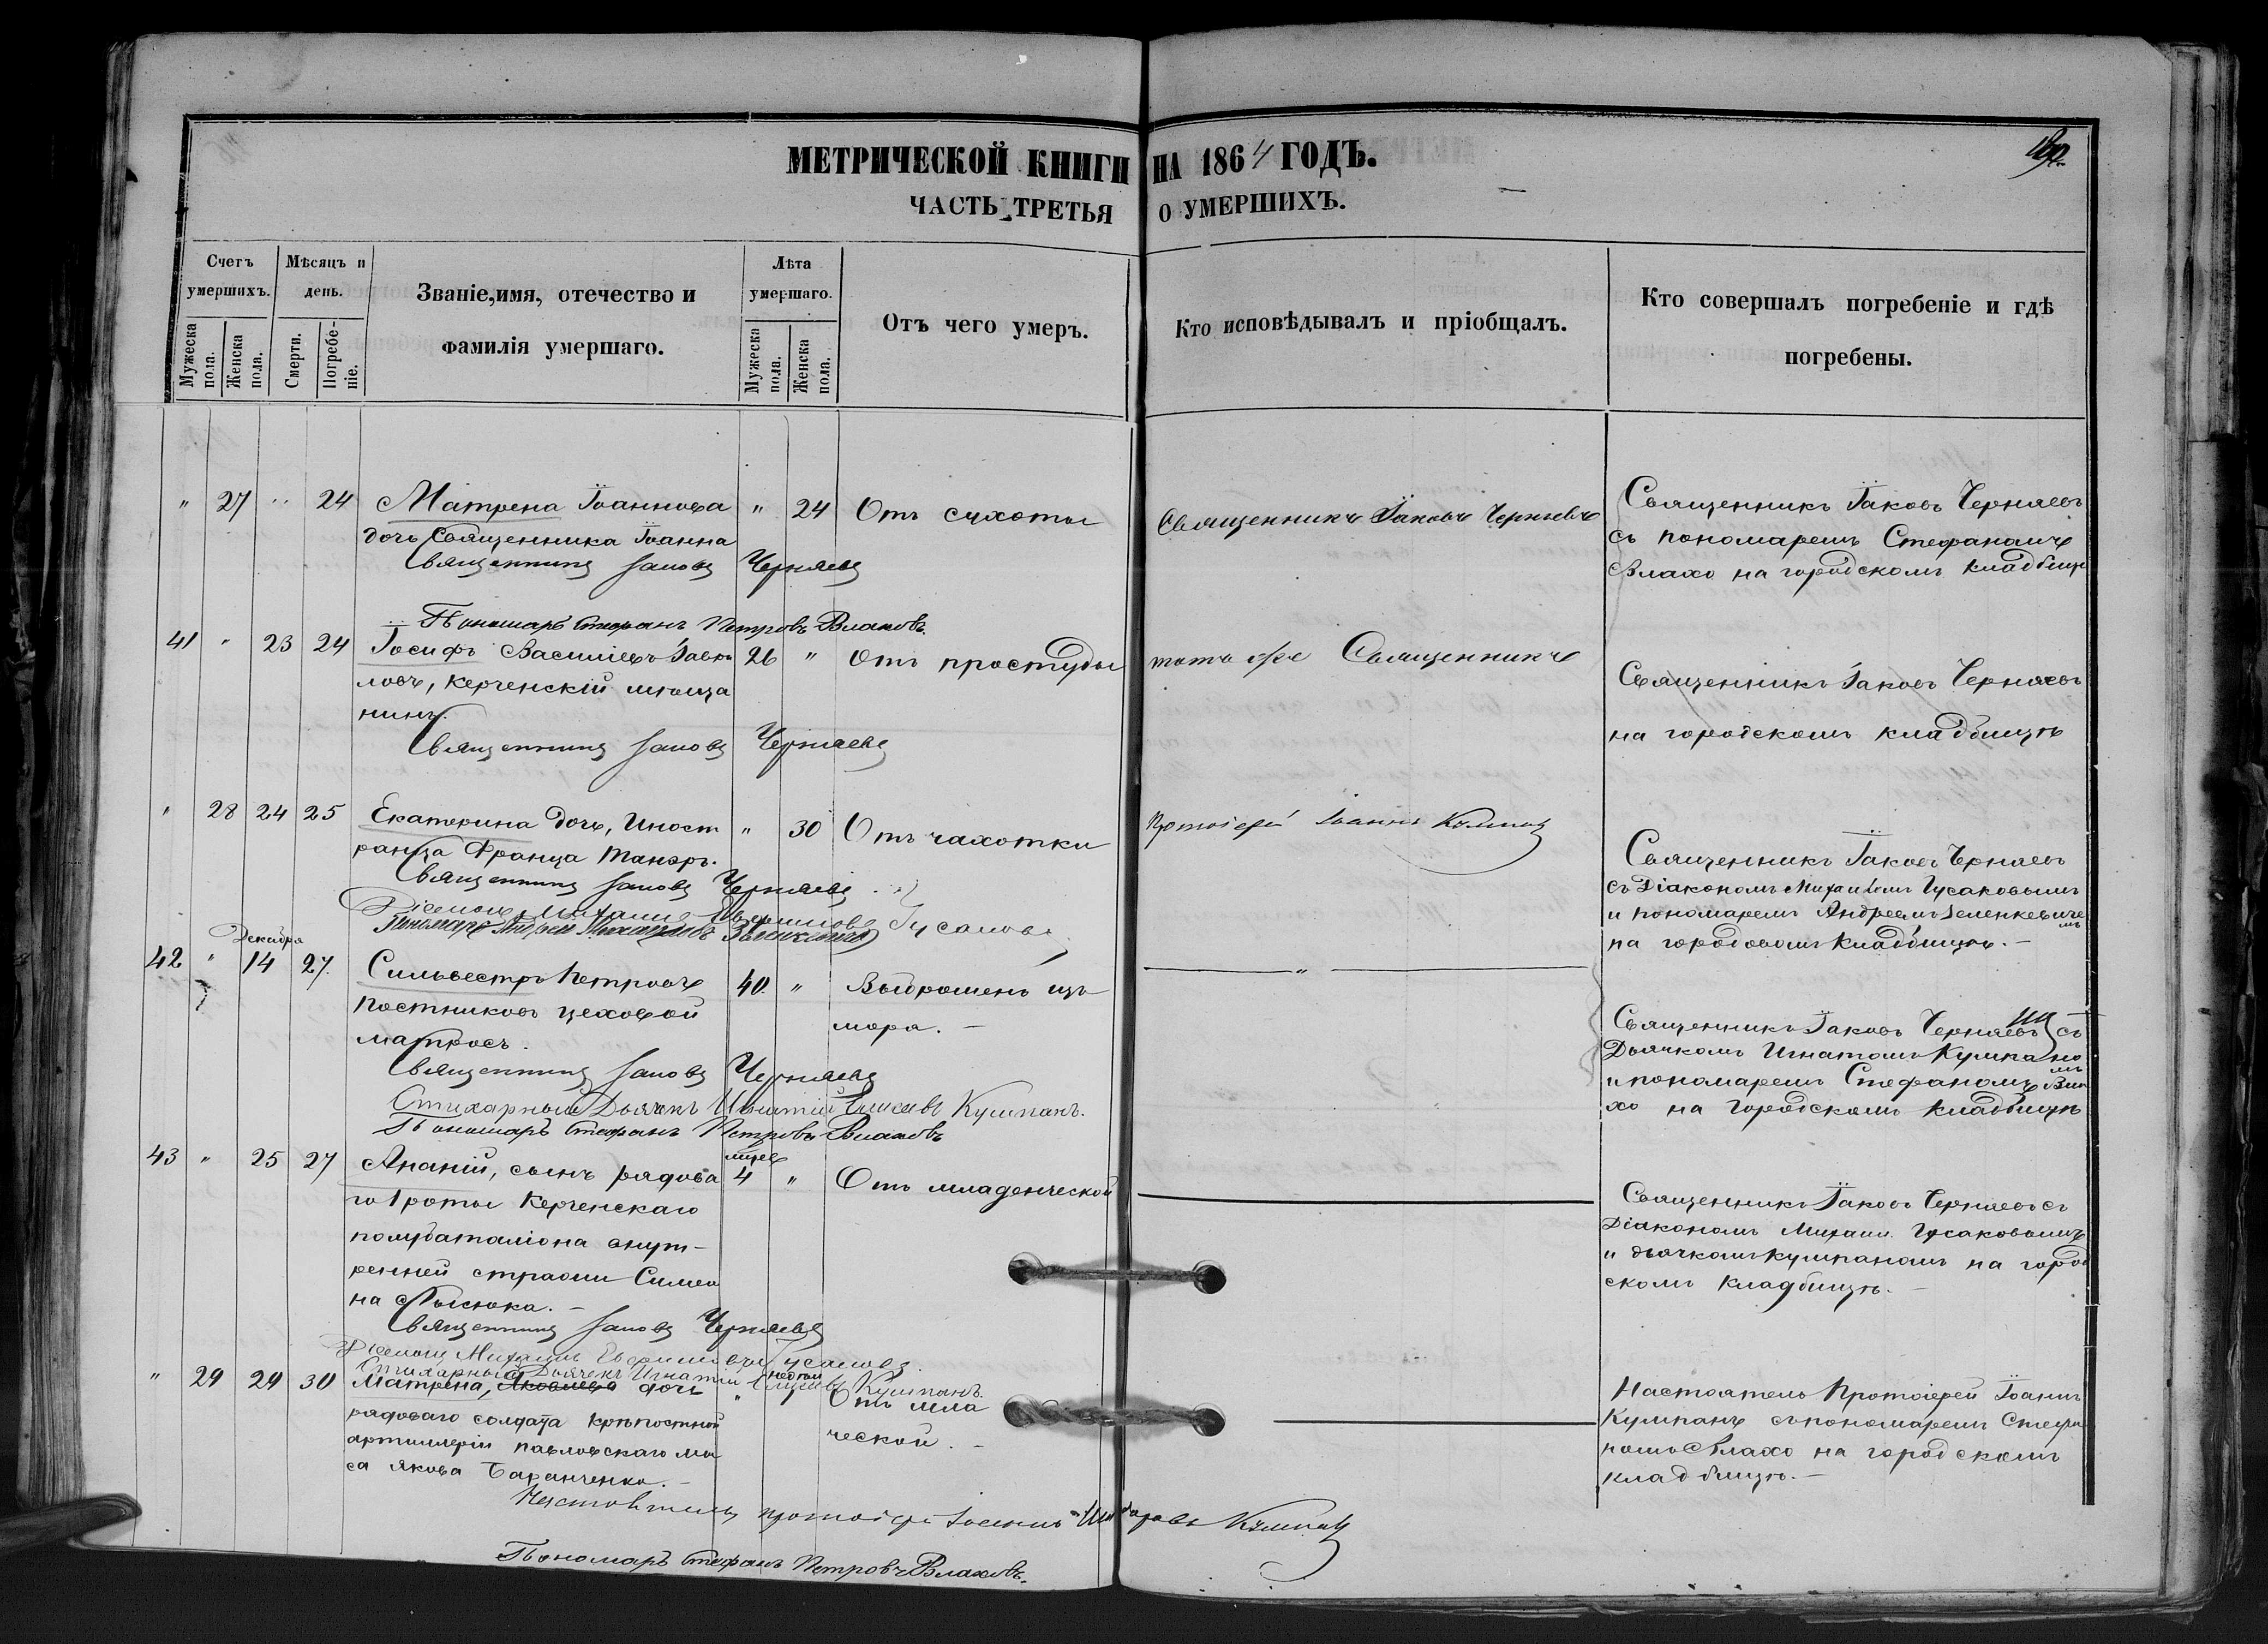 МЕТРИЧЕСКОЙ КНИГИ НА 1864 ГОДЪ.
ЧАСТЬ ТРЕТЬЯ О УМЕРШИХЪ.
Счетъ умершихъ.
Мужеска пола.
Женска пола.
Мѣсяцъ и день.
Смерти.
Погребеніе.
Званіе, имя, отечество и фамилія умершаго.
Лѣта умершаго.
Мужеска пола.
Женска пола.
Отъ чего умеръ.
Кто исповѣдывалъ и пріобщалъ.
Кто совершалъ погребеніе и гдѣ погребены.
" 27 " 24 Матрена Іоаннова " 24 Отъ сухоты Священникъ Іаковъ Черняевъ
дочь Священника Іоанна
Священникъ Іаковъ Черняевъ
Священникъ Іаковъ Черняевъ
съ пономаремъ Стефаномъ
Влахо на городскомъ кладбищѣ
Пономарь Стефанъ Петровъ Влаховъ.
41 " 23 24 Іосифъ Васильевъ 26 " Отъ простуды тотъ же Священникъ
ловъ, Керченскій мѣща
нинъ.
Священникъ Іаковъ Черняевъ
Священникъ Іаковъ Черняевъ
на городскомъ кладбищѣ
" 28 24 25 Екатерина дочь, Иност " 30 Отъ чахотки Протоіерей Іоаннъ Кумпанъ
ранца Франца
Священникъ Іаковъ Черняевъ
Діаконъ Михаилъ Евфимовъ Гусаковъ
Пономарь Андрей Михайловъ Зеленкевичъ
Священникъ Іаковъ Черняевъ
съ Діакономъ Михаиломъ Гусаковымъ
и пономаремъ Андреемъ Зеленкевиче
мъ
на городовомъ кладбищѣ.
Декабря
42 " 14 27. Сильвестръ Петровъ 40. " Выброшенъ изъ
Постниковъ цеховой моря.
матросъ.
Священникъ Іаковъ Черняевъ
Стихарный Дьячекъ Игнатій Елисеевъ Кумпанъ.
Пономарь Стефанъ Петровъ Влаховъ
Священникъ Іаковъ Черняевъ съ
Дьячкомъ Игнатомъ Кумпано
мъ
и пономаремъ Стефаномъ Вла
хо на Городскомъ кладбищѣ
43 " 25 27 Ананій, сынъ рядова 4 " Отъ младенческой
го 1 роты Керченскаго
полубаталіона внут-
ренней стражи Симео
на
Священникъ Іаковъ Черняевъ
Діаконъ Михаилъ Евфимовъ Гусаковъ.
Стихарный Дьячекъ Игнатій Елисеевъ Кумпанъ.
Священникъ Іаковъ Черняевъ съ
Діакономъ Михаил. Гусаковымъ
и дьячкомъ Кумпаномъ на город
скомъ кладбищѣ.
" 29 29 30 Матрена, Яковлева дочь " Отъ мла
рядоваго солдата крѣпостной ческой.
артиллеріи павловскаго мы
са Якова Баранченко.
Настоятель Протоіерей Іоаннъ
Кумпанъ съ пономаремъ Стефа
номъ Влахо на городскомъ
кладбищѣ.
Настоятель протоіерей Іоаннъ Кумпанъ
Пономарь Стефанъ Петровъ Влаховъ.